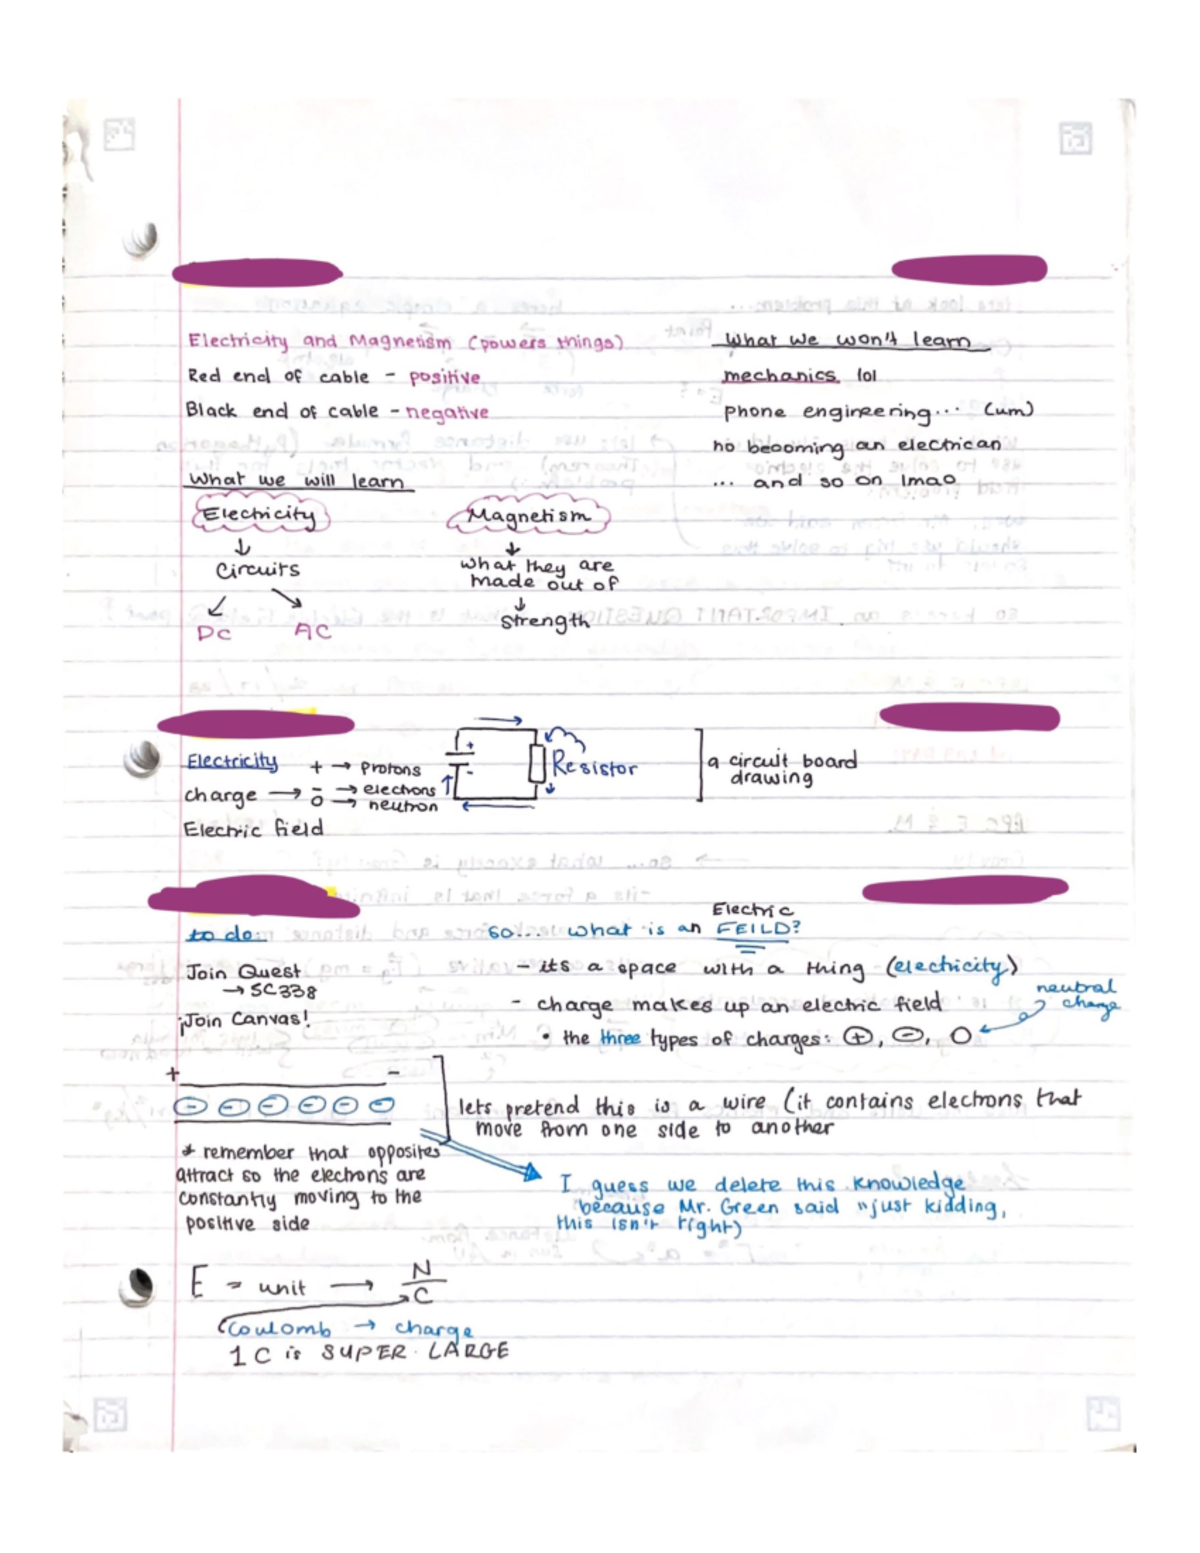 Electricity and Magnetism (powers things)
Red end of cable - positive
Black end of cable - negative
What we will learn
Electricity
↓
Circuits
↙ ↘
DC AC
Magnetism
↓
what they are
made out of
↓
strength
What we won't learn
mechanics lol
phone engineering... (um)
no becoming an electrican
... and so on lmao
Electricity + → protons
charge → - → electrons
o → neutron
Electric field
+
-
Resistor
a circuit board
drawing
to do
Join Quest
→ SC338
¡Join Canvas!
Electric
so... what is an FEILD?
- its a space with a thing (electricity)
- charge makes up an electric field
neutral
charge
• the three types of charges: ⊕, ⊖, O
+ -
- - - - - -
lets pretend this is a wire (it contains electrons that
move from one side to another
* remember that opposites
attract so the electrons are
constantly moving to the
positive side
I guess we delete this knowledge
because Mr. Green said "just kidding,
this isn't right)
E = unit → N/C
Coulomb → charge
1 C is SUPER LARGE